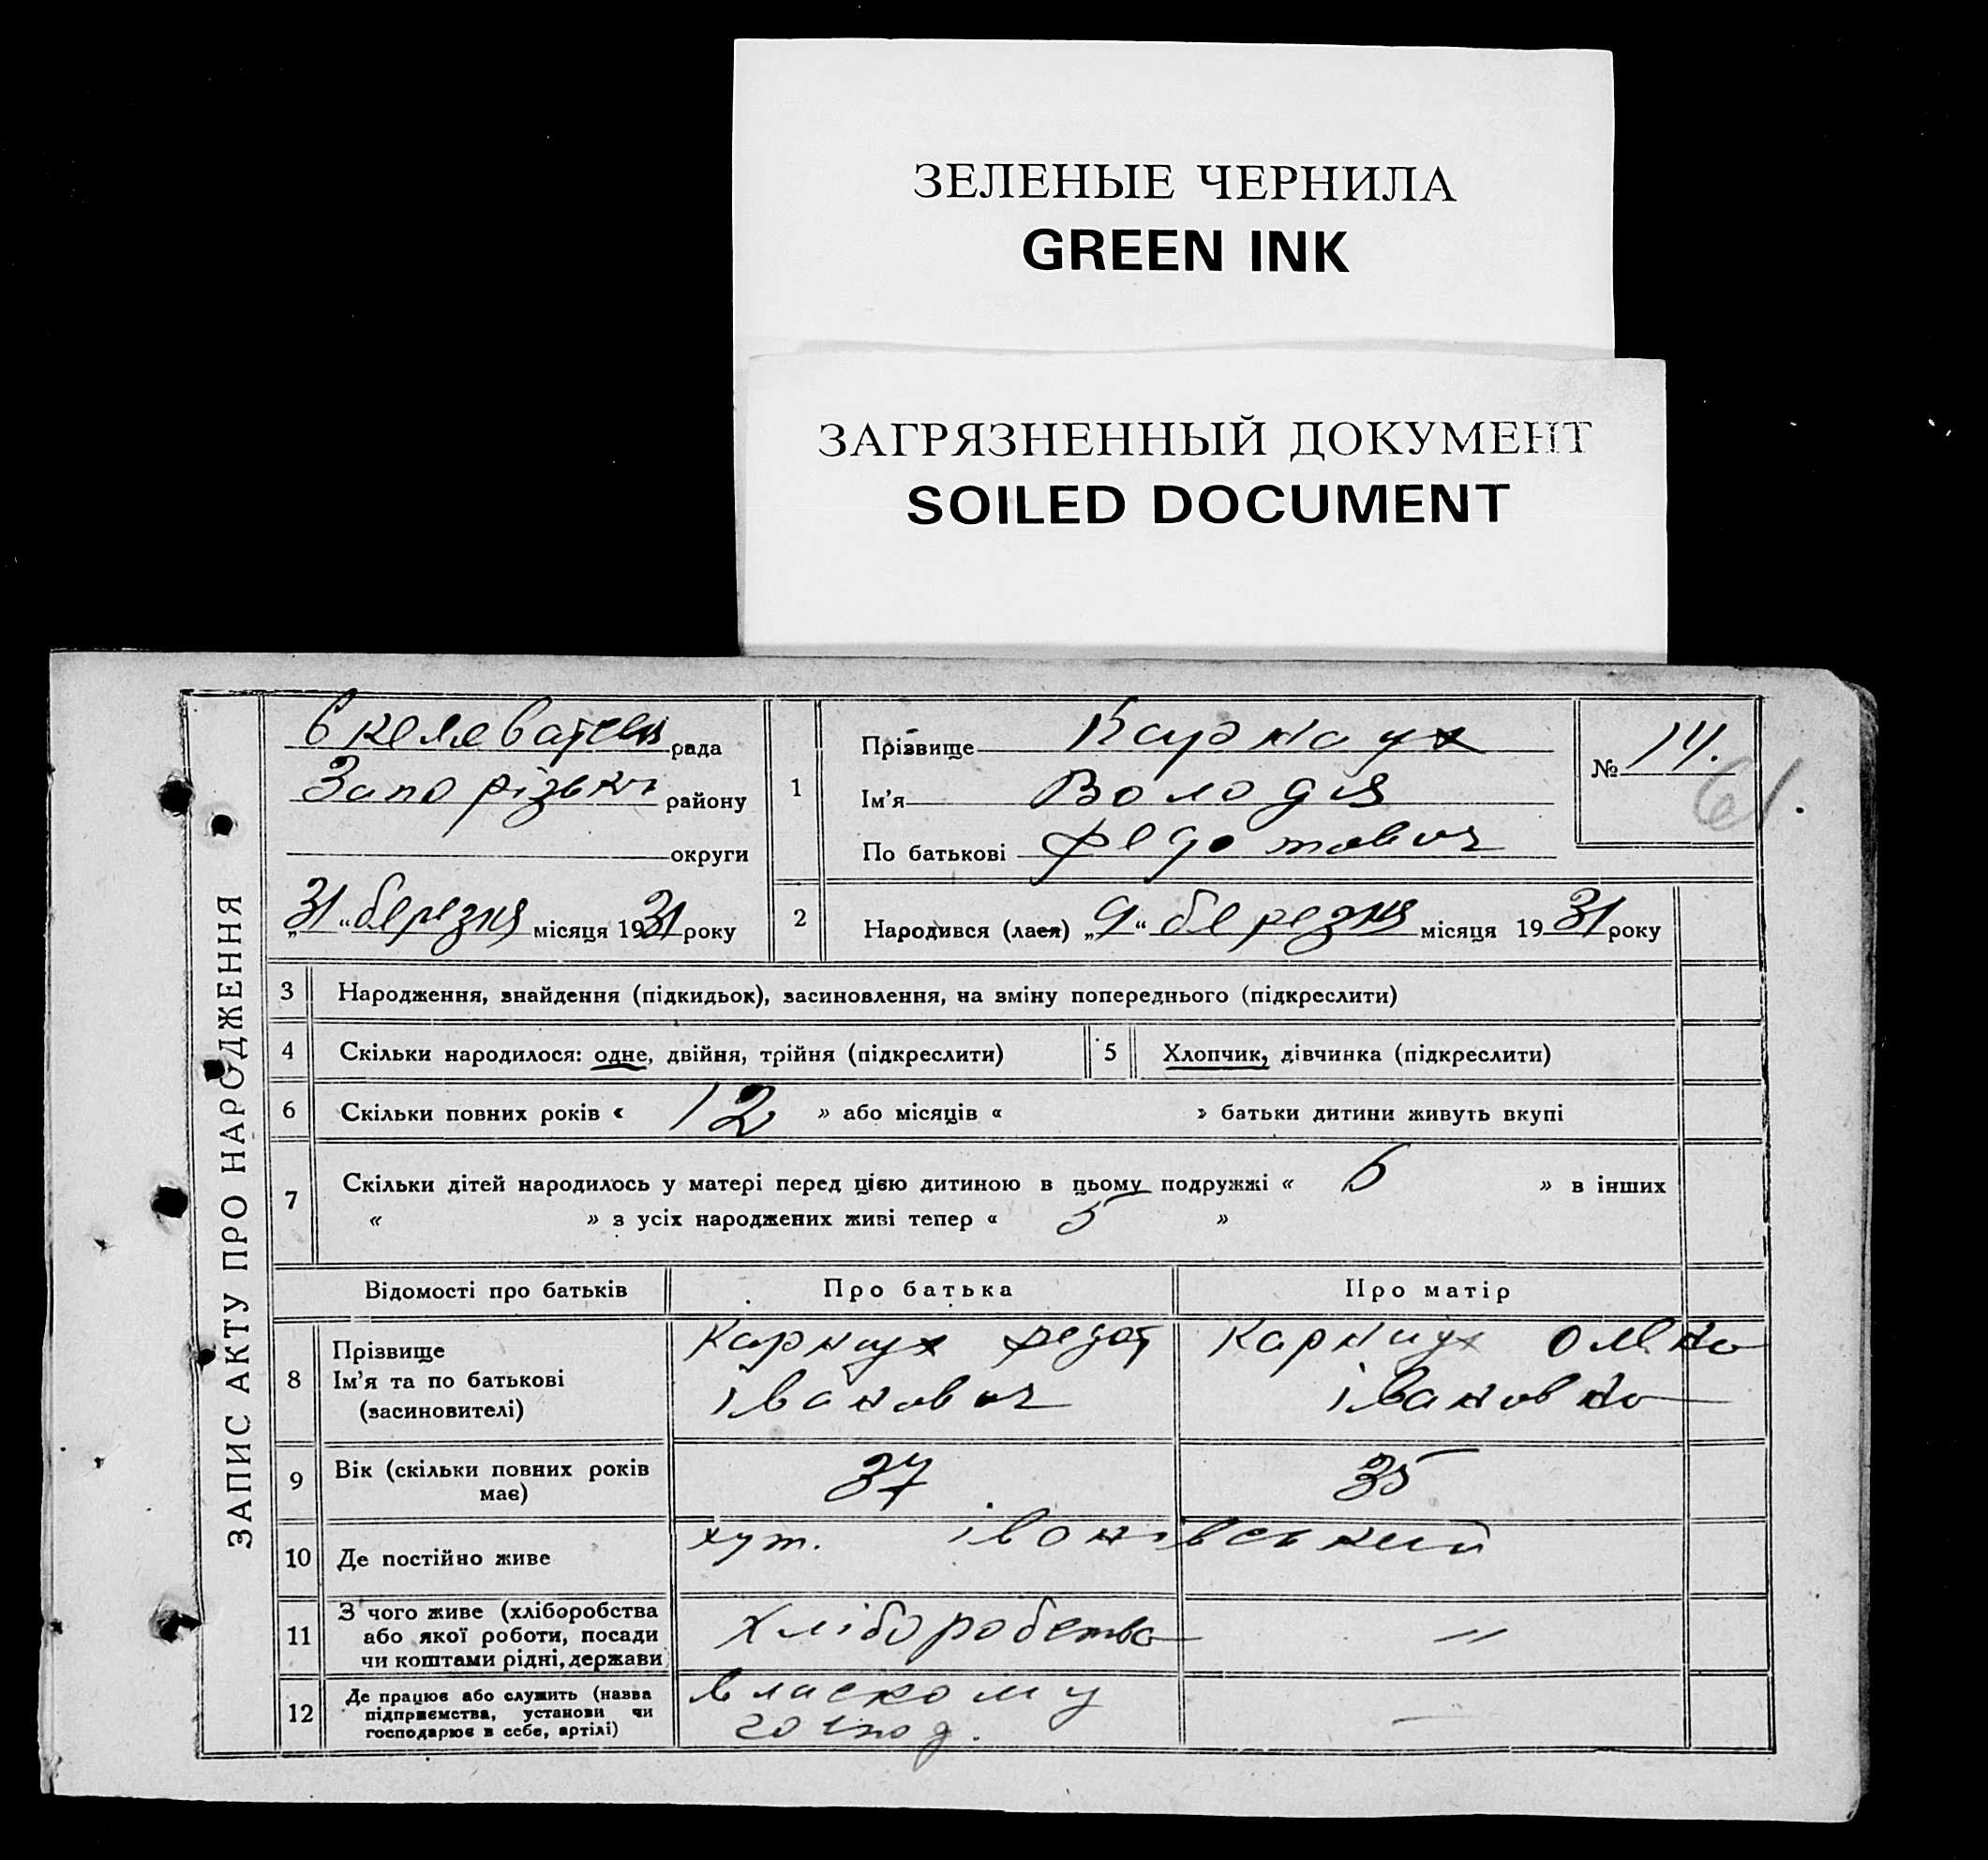 ЗЕЛЕНЫЕ ЧЕРНИЛА
GREEN INK
ЗАГРЯЗНЕННЫЙ ДОКУМЕНТ
SOILED DOCUMENT
ЗАПИС АКТУ ПРО НАРОДЖЕННЯ
рада
Запорізьк району
округи
„31“ березня місяця 1931 року
1
Прізвище Карнаух
Ім'я Володя
По батькові Федотович
№ 14.
61.
2 Народився (лася) „9“ березня місяця 1931 року
3 Народження, знайдення (підкидьок), засиновлення, на зміну попереднього (підкреслити)
4 Скільки народилося: одне, двійня, трійня (підкреслити) 5 Хлопчик, дівчинка (підкреслити)
6 Скільки повних років « 12 » або місяців « » батьки дитини живуть вкупі
7 Скільки дітей народилось у матері перед цією дитиною в цьому подружжі « » в інших
« » з усіх народжених живі тепер « 5 »
Відомості про батьків Про батька Про матір
8 Прізвище
Ім'я та по батькові
(засиновителі)
Карнаух Федот
Іванович
Карнаух
Івановна
9 Вік (скільки повних років
має)
37 35
10 Де постійно живе хут. Іванівський
11 З чого живе (хліборобства
або якої роботи, посади
чи коштами рідні, держави
хліборобство "
12 Де працює або служить (назва
підприємства, установи чи
господарює в себе, артілі)
власкому
господ. —